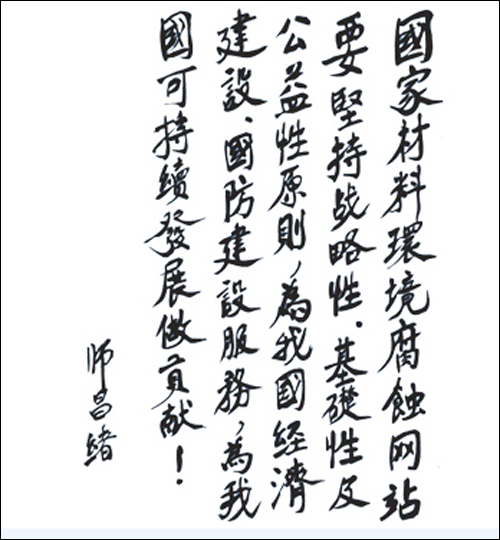 國家材料環境腐蝕网站
要堅持战略性、基礎性及
公益性原則,為我國經濟
建設、國防建設服務,為我
國可持續發展做貢献!
师昌緒